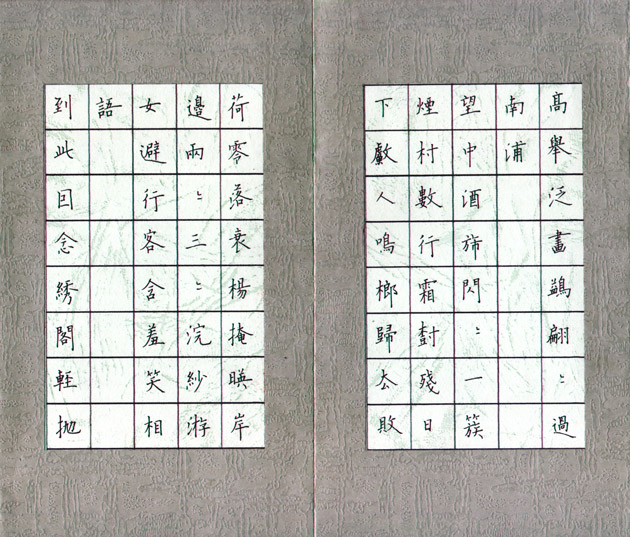 高舉泛畫鷁翩〻過
南浦
望中酒旆閃〻一簇
煙村數行霜樹殘日
下人鳴榔歸去敗
荷零落衰楊掩暎岸
邊兩〻三〻浣紗游
女避行客含羞笑相
語
到此回念綉閣輕拋